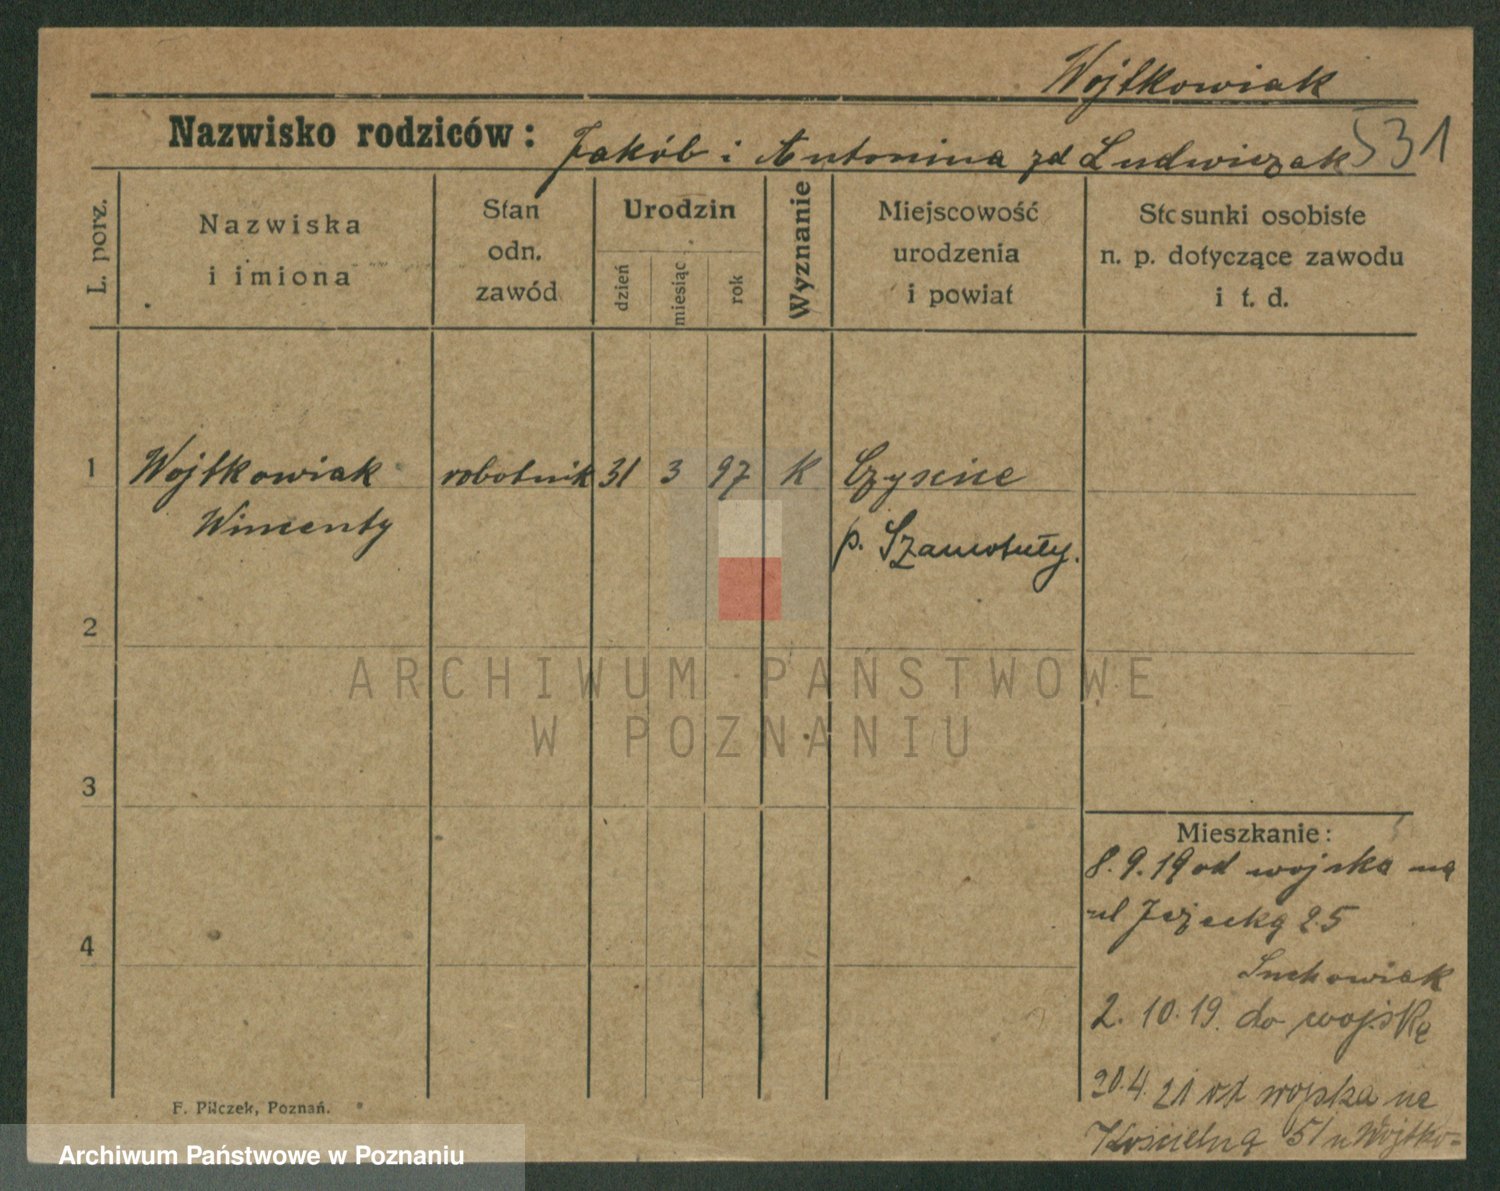 Wojtkowiak
Nazwisko rodziców: Jakób i Antonina zd Ludwiczak
531
L. porz.
Nazwiska
i imiona
Stan
odn.
zawód
Urodzin
dzień
miesiąc
rok
Wyznanie
Miejscowość
urodzenia
i powiat
Stosunki osobiste
n. p. dotyczące zawodu
i t. d.
1
Wojtkowiak robotnik 31 3 97 K
Wincenty
p. Szamotuły.
2
3
4
Mieszkanie:
8.9.19 od wojska na
ul 25
Suchowiak
2. 10. 19. do
20.4. 21 od wojska na
Kościelną 51 u Wojtko-
F. Pilczek, Poznań.
ARCHIWUM PAŃSTWOWE
W POZNANIU
Archiwum Państwowe w Poznaniu